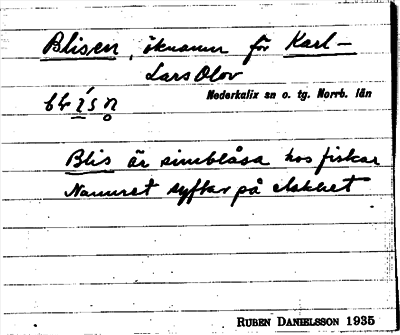 Blisen, öknamn för Karl-
Lars Olov
Nederkalix sn o. tg. Norrb. län
Blis är simblåsa hos fiskar
Namnet syftar på
RUBEN DANIELSSON 1935